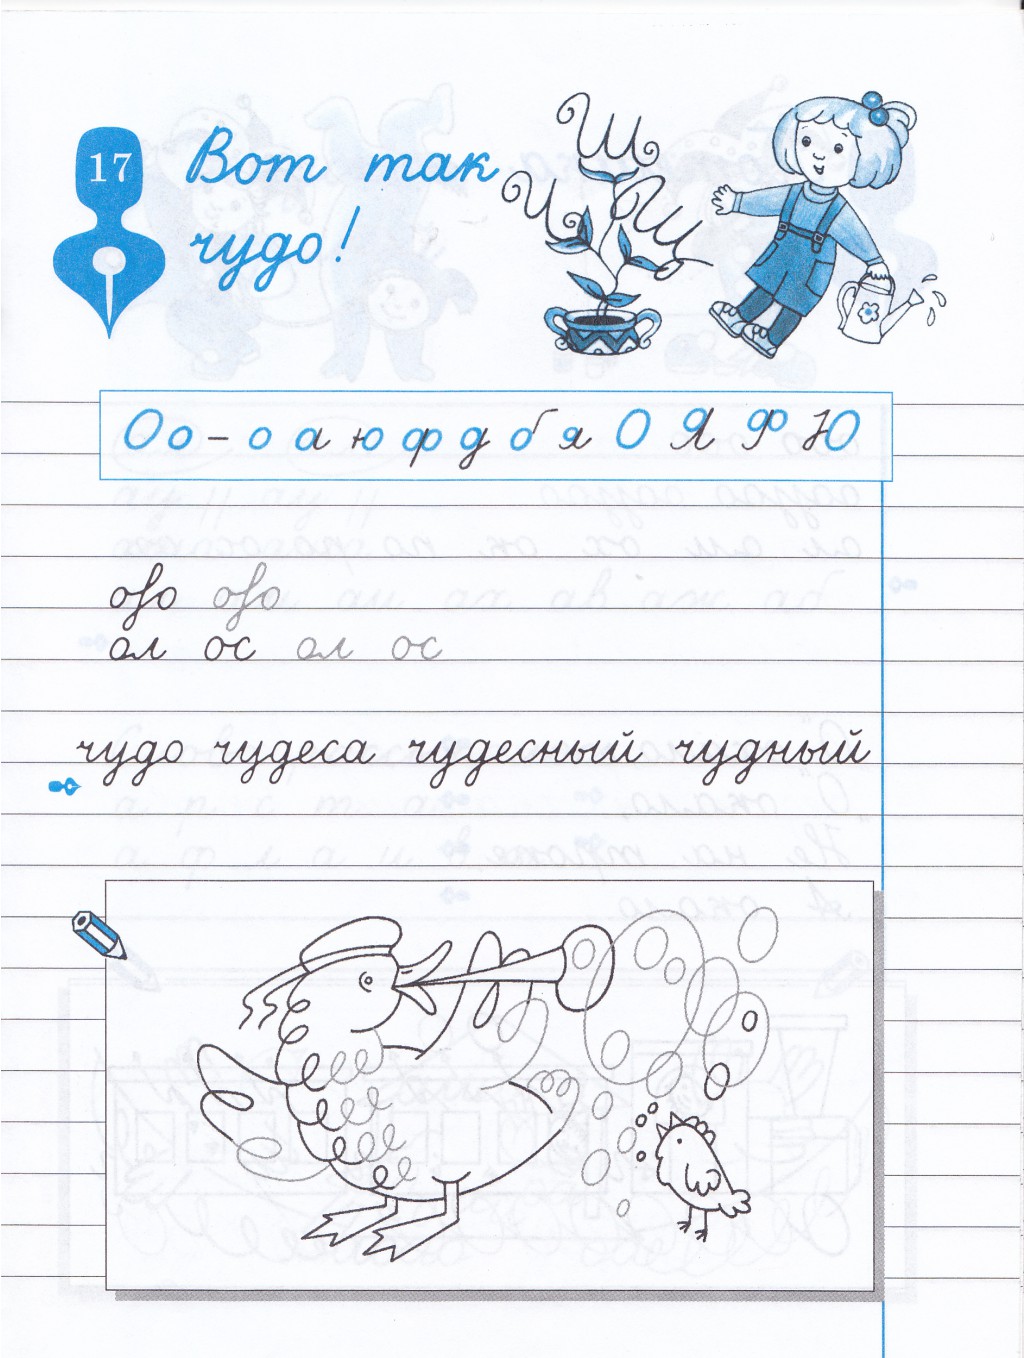 17
Вот так
чудо!
Ш
И Ш
Оо – о а ю ф д б я О Я Ф Ю
ово ово
ол ос ол ос
чудо чудеса чудесный чудный